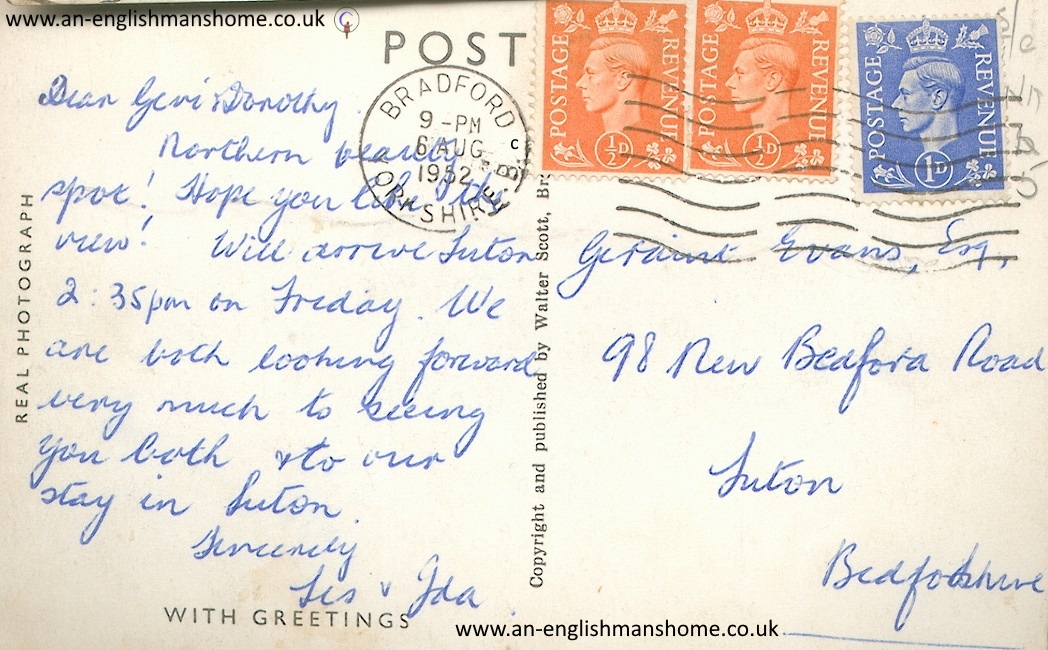 www.an-englishmanshome.co.uk
POST
BRADFORD
9-PM
6 AUG
1952
YORKSHIRE
C
POSTAGE REVENUE
½D
POSTAGE REVENUE
½D
POSTAGE REVENUE
1D
REAL PHOTOGRAPH
Dear Gevi & Dorothy.
Northern beauty
spot! Hope you like the
view! Will arrive Luton
2:35pm on Friday. We
are both looking forward
very much to seeing
you both & to our
stay in Luton.
Sincerely
Les & Ida.
WITH GREETINGS
Copyright and published by Walter Scott, Br
Geraint Evans, Esq.,
98 New Bedford Road
Luton
Bedfordshire
www.an-englishmanshome.co.uk